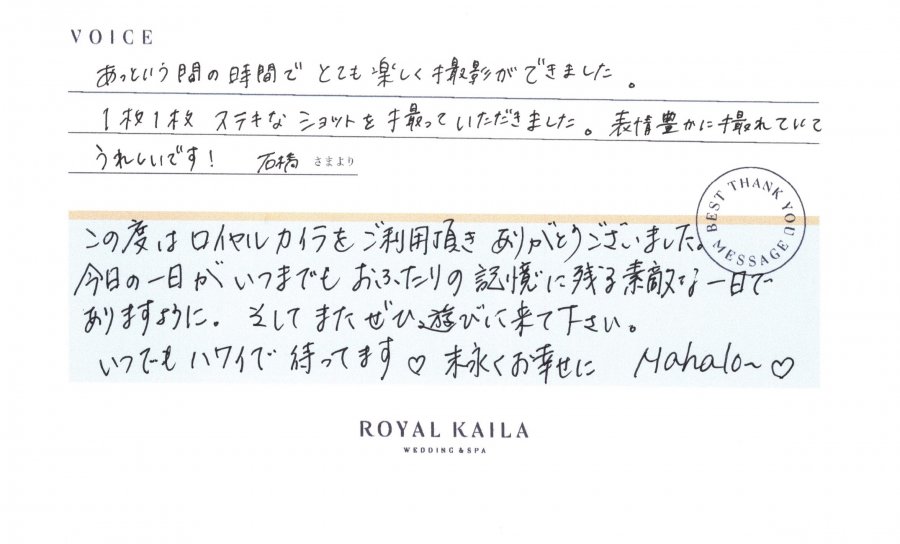 VOICE
あっという間の時間で とても楽しく撮影ができました。
1枚1枚 ステキな ショットを撮っていただきました。表情豊かに撮れていて
うれしいです! 石橋 さまより
BEST THANK YOU MESSAGE
この度はロイヤルカイラをご利用頂きありがとうございました。
今日の一日がいつまでもおふたりの記憶に残る素敵な一日で
ありますように。そしてまたぜひ遊びに来て下さい。
いつでもハワイで待ってます♡ 末永くお幸せに Mahalo~♡
ROYAL KAILA
WEDDING & SPA